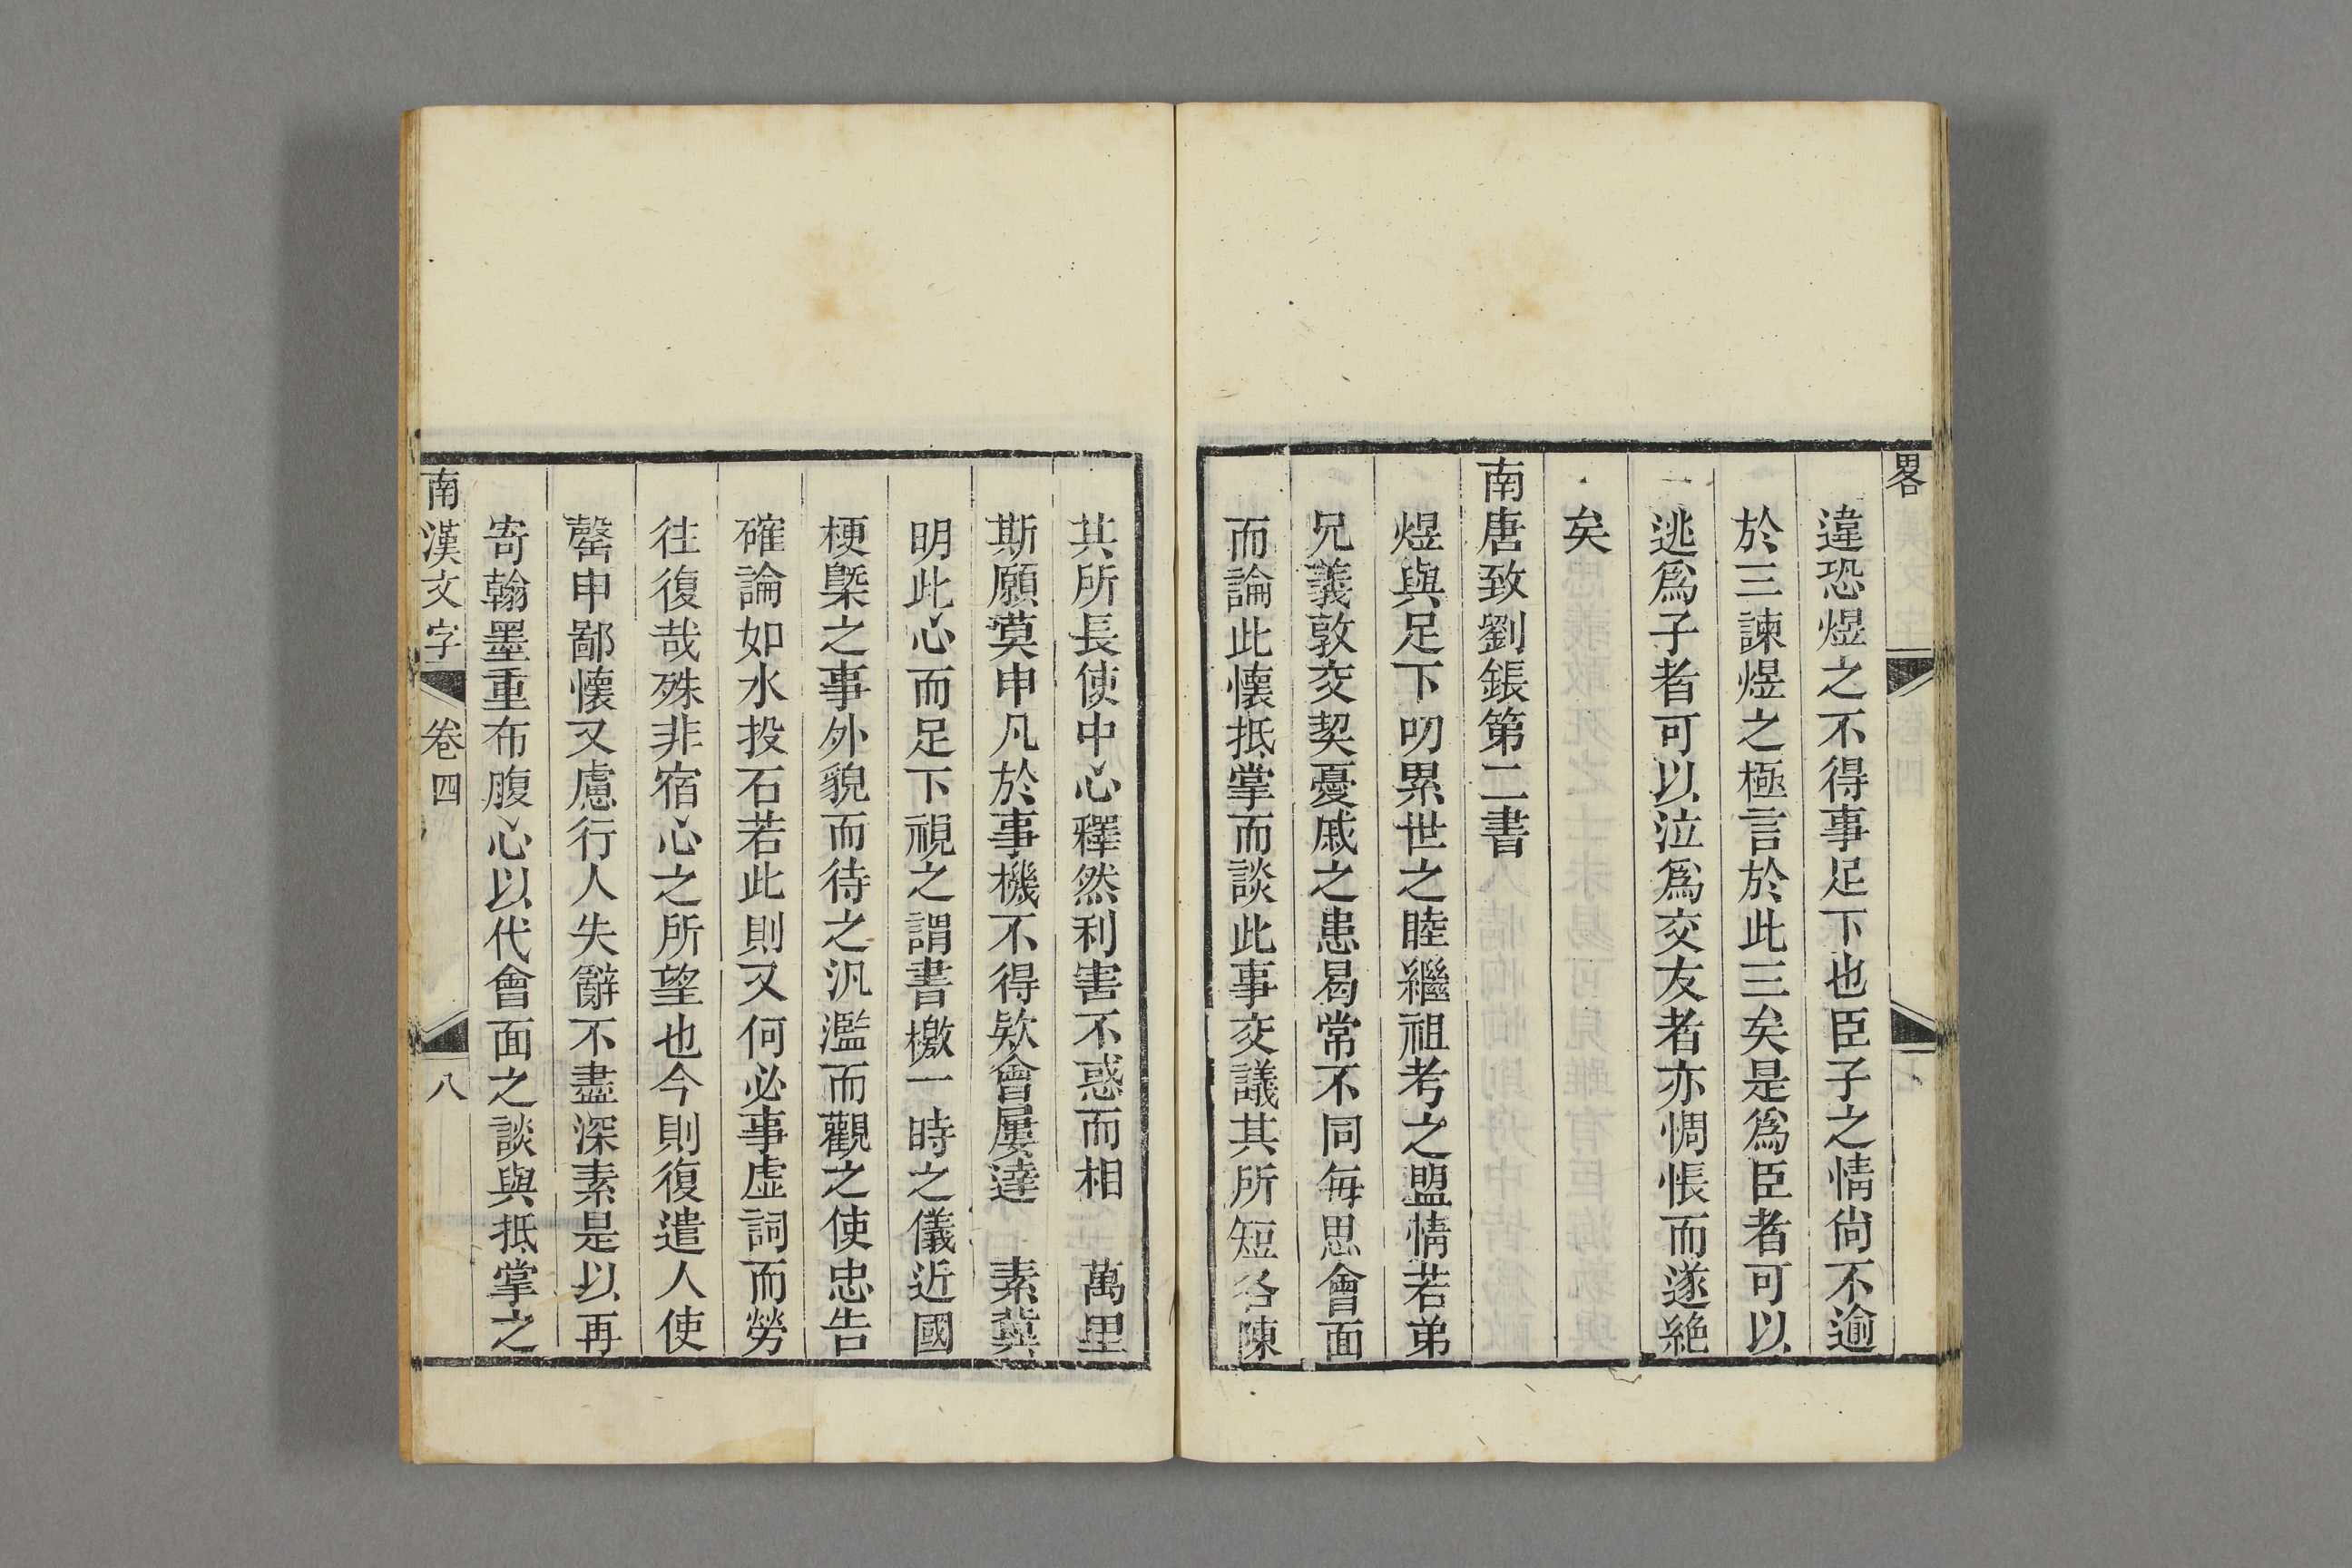 畧
違恐煜之不得事足下也臣子之情尙不逾
於三諫煜之極言於此三矣是爲臣者可以
逃爲子者可以泣爲交友者亦惆悵而遂絶
矣
南唐致劉鋹第二書
煜與足下叨累世之睦繼祖考之盟情若弟
兄義敦交契憂戚之患曷常不同每思會面
而論此懷抵掌而談此事交議其所短各陳
其所長使中心釋然利害不惑而相　萬里
斯願莫申凡於事機不得欵會屢達　素冀
明此心而足下視之謂書檄一時之儀近國
梗槩之事外貌而待之汎濫而觀之使忠告
確論如水投石若此則又何必事虛詞而勞
往復哉殊非宿心之所望也今則復遣人使
罄申鄙懷又慮行人失辭不盡深素是以再
寄翰墨重布腹心以代會面之談與抵掌之
南漢文字　卷四　八